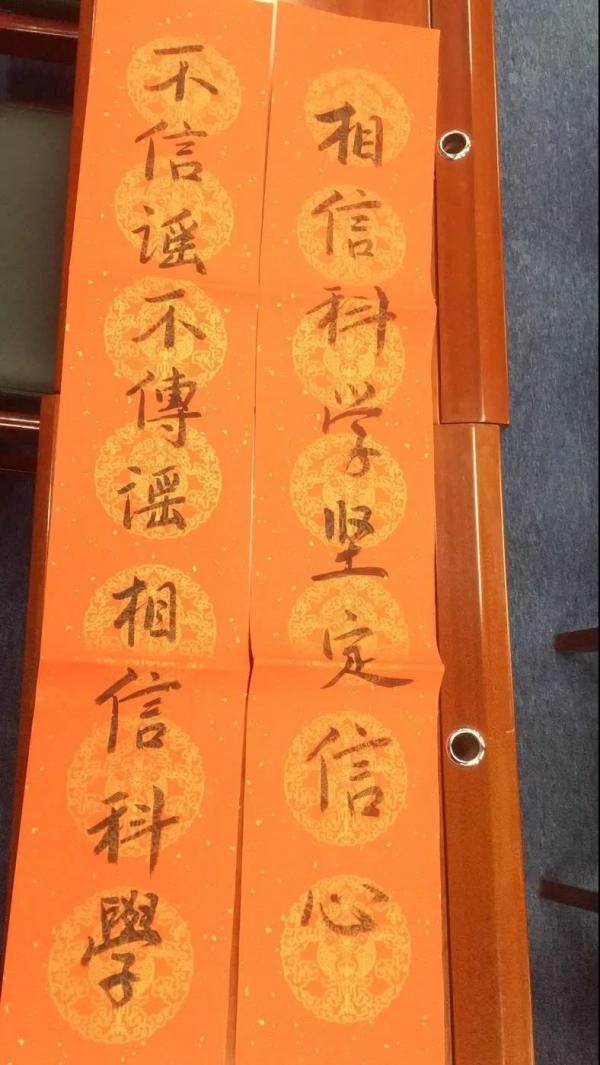 相信科学坚定信心
不信谣不傳谣相信科學